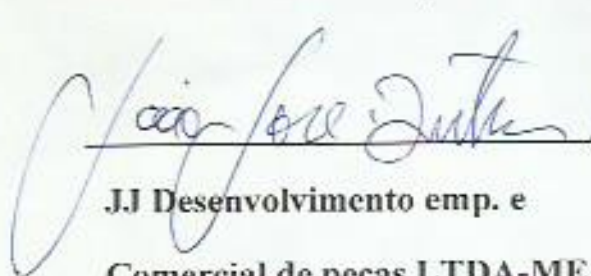 João José
JJ Desenvolvimento emp. e
Comercial de peças LTDA-ME